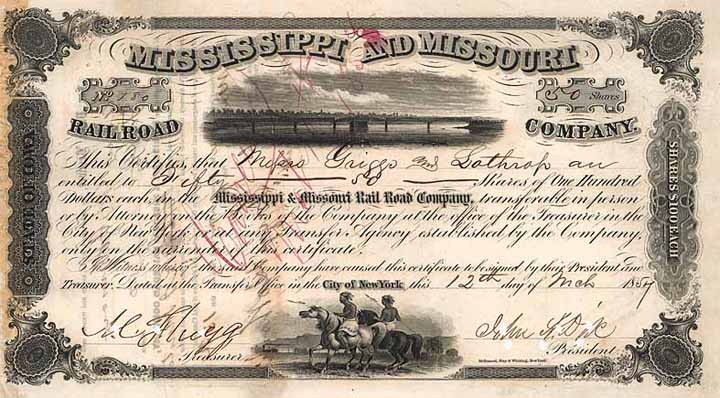 MISSISSIPPI AND MISSOURI
No 150
50 Shares
RAIL ROAD
COMPANY.
This Certifies, that Messrs Griggs and Lathrop are
entitled to Fifty 50 Shares of One Hundred
Dollars each, in the Mississippi & Missouri Rail Road Company, transferable in person
or by Attorney on the Books of the Company at the office of the Treasurer in the
City of New York or at any Transfer Agency established by the Company,
only on the surrender of this certificate.
In Witness whereof the said Company have caused this certificate to be signed by their President and
Treasurer. Dated at the Transfer Office in the City of New York this 12th day of Mch 1857
John A. Dix
Treasurer
President
SHARES $100 EACH